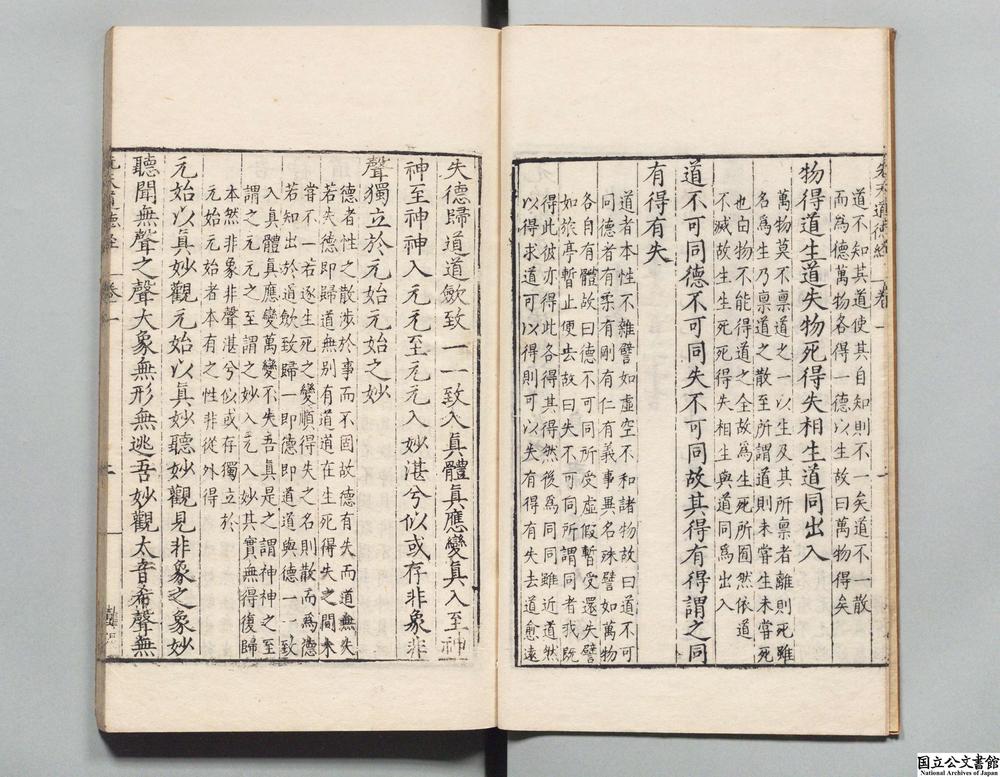 道不知其道使其自知則不一矣道不一散
而爲德萬物各得一德以生故曰萬物得矣
物得道生道失物死得失相生道同出入
萬物莫不禀道之一以生及其所禀者離則死雖
名爲生乃禀道之散至所謂道則未甞生未甞死
也白物不能得道之全故爲生死所囿然依道
不滅故生生死死得失相生與道同爲出入
道不可同德不可同失不可同故其得有得謂之同
有得有失
道者本性不雜譬如虚空不和諸物故曰道不可
同德者有柔有剛有仁有義事異名殊譬如萬物
各自有體故曰德不可同所受虚假暫受還失譬
如旅亭暫止便去故曰失不可同所謂同者我旣
得此彼亦得此各得其得然後爲同同雖近道然
以得求道可以得則可以失有得有失去道愈遠
失德歸道道歛致一一致入真體真應變真入至神
神至神神入元元至元元入妙湛兮似或存非象非
聲獨立於元始元始之妙
德者性之散涉於事而不固故德有失而道無失
若失德即歸道無別有道道在生死得失之間未
甞不一若逐生死之變順得失之名則散而爲德
若知出於道歛致歸一即德即道道與德一一致
入真體真應變萬變不失吾真是之謂神神之至
謂之元元之至謂之妙入元入妙其實無得復歸
本然非象非聲湛兮似或存獨立於
元始元始者本有之性非從外得
元始以真妙觀元始以真妙聽妙觀見非象之象妙
聽聞無聲之聲大象無形無逃吾妙觀太音希聲無
卷一
国立公文書館
National Archives of Japan